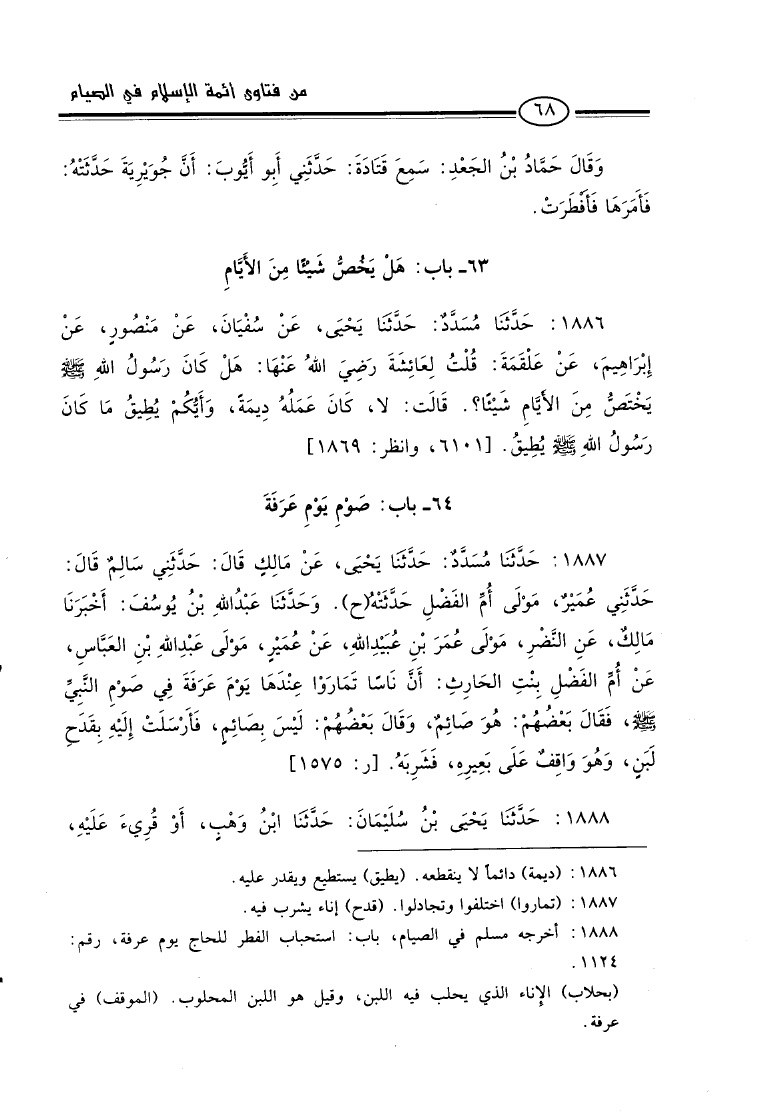 من فتاوى أئمة الإسلام في الصيام
٦٨
وَقَالَ حَمَّادُ بْنُ الجَعْدِ: سَمِعَ قَتَادَةَ: حَدَّثَنِي أَبو أَيُّوبَ: أَنَّ جُوَيْرِيَةَ حَدَّثَتْهُ:
فَأَمَرَهَا فَأَفْطَرَتْ.
٦٣ـ باب: هَلْ يَخُصُّ شَيْئًا مِنَ الأَيَّامِ
١٨٨٦: حَدَّثَنَا مُسَدَّدٌ: حَدَّثَنَا يَحْيَى، عَنْ سُفْيَانَ، عَنْ مَنْصُورٍ، عَنْ
إِبْرَاهِيمَ، عَنْ عَلْقَمَةَ: قُلْتُ لِعَائِشَةَ رَضِيَ اللهُ عَنْهَا: هَلْ كَانَ رَسُولُ اللهِ ﷺ
يَخْتَصُّ مِنَ الأَيَّامِ شَيْئًا؟. قَالَت: لا، كَانَ عَمَلُهُ دِيمَةً، وَأَيُّكُمْ يُطِيقُ مَا كَانَ
رَسُولُ اللهِ ﷺ يُطِيقُ. [٦١٠١، وانظر: ١٨٦٩]
٦٤ـ باب: صَوْمِ يَوْمِ عَرَفَةَ
١٨٨٧: حَدَّثَنَا مُسَدَّدٌ: حَدَّثَنَا يَحْيَى، عَنْ مَالِكٍ قَالَ: حَدَّثَنِي سَالِمٌ قَالَ:
حَدَّثَنِي عُمَيْرٌ، مَوْلَى أُمِّ الفَضْلِ حَدَّثَتْهُ(ح). وَحَدَّثَنَا عَبْدُاللهِ بْنُ يُوسُفَ: أَخْبَرَنَا
مَالِكٌ، عَنِ النَّضْرِ، مَوْلَى عُمَرَ بْنِ عُبَيْدِاللهِ، عَنْ عُمَيْرٍ، مَوْلَى عَبْدِاللهِ بْنِ العَبَّاسِ،
عَنْ أُمِّ الفَضْلِ بِنْتِ الحَارِثِ: أَنَّ نَاسًا تَمَارَوْا عِنْدَهَا يَوْمَ عَرَفَةَ فِي صَوْمِ النَّبِيِّ
ﷺ، فَقَالَ بَعْضُهُمْ: هُوَ صَائِمٌ، وَقَالَ بَعْضُهُمْ: لَيْسَ بِصَائِمٍ، فَأَرْسَلَتْ إِلَيْهِ بِقَدَحِ
لَبَنٍ، وَهُوَ وَاقِفٌ عَلَى بَعِيرِهِ، فَشَرِبَهُ. [ر: ١٥٧٥]
١٨٨٨: حَدَّثَنَا يَحْيَى بْنُ سُلَيْمَانَ: حَدَّثَنَا ابْنُ وَهْبٍ، أَوْ قُرِيءَ عَلَيْهِ،
١٨٨٦: (ديمة) دائماً لا ينقطعه. (يطيق) يستطيع ويقدر عليه.
١٨٨٧: (تماروا) اختلفوا وتجادلوا. (قدح) إناء يشرب فيه.
١٨٨٨: أخرجه مسلم في الصيام، باب: استحباب الفطر للحاج يوم عرفة، رقم:
١١٢٤.
(بحلاب) الإناء الذي يحلب فيه اللبن، وقيل هو اللبن المحلوب. (الموقف) في
عرفة.